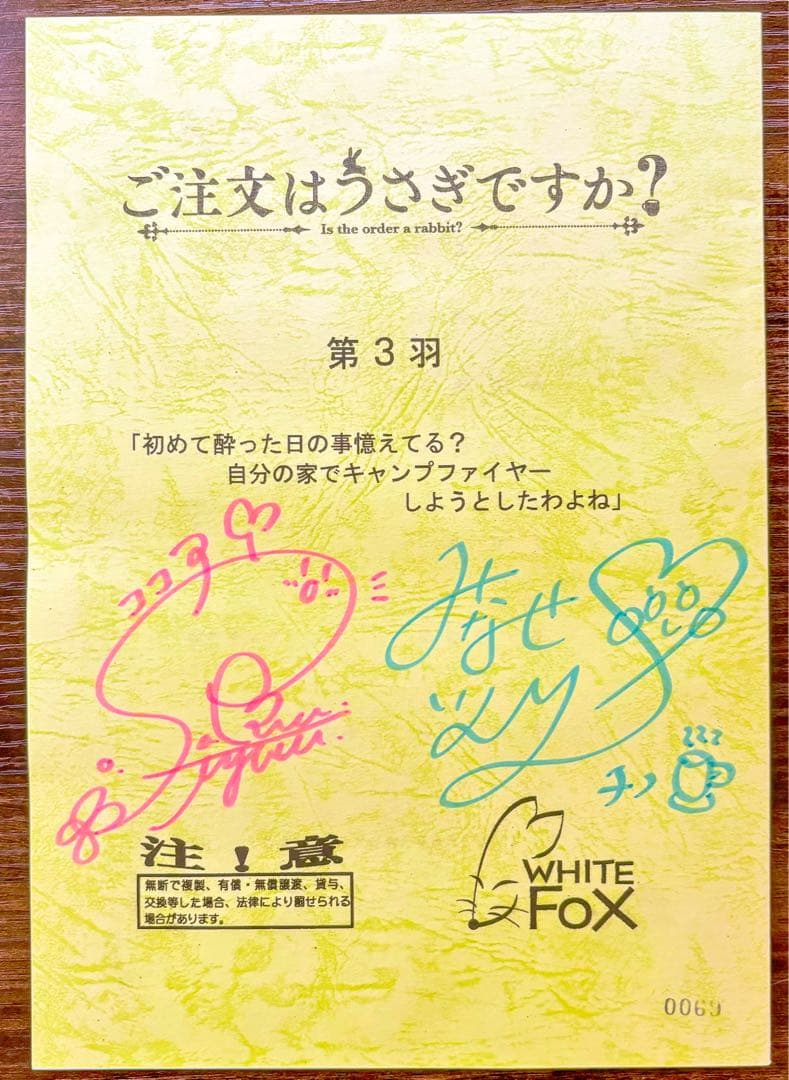 ご注文はうさぎですか?
Is the order a rabbit?
第3羽
「初めて酔った日の事憶えてる?
自分の家でキャンプファイヤー
しようとしたわよね」
ココア
みなせ
チノ
注!意
無断で複製、有償・無償譲渡、貸与、
交換等した場合、法律により罰せられる
場合があります。
WHITE
FOX
0069